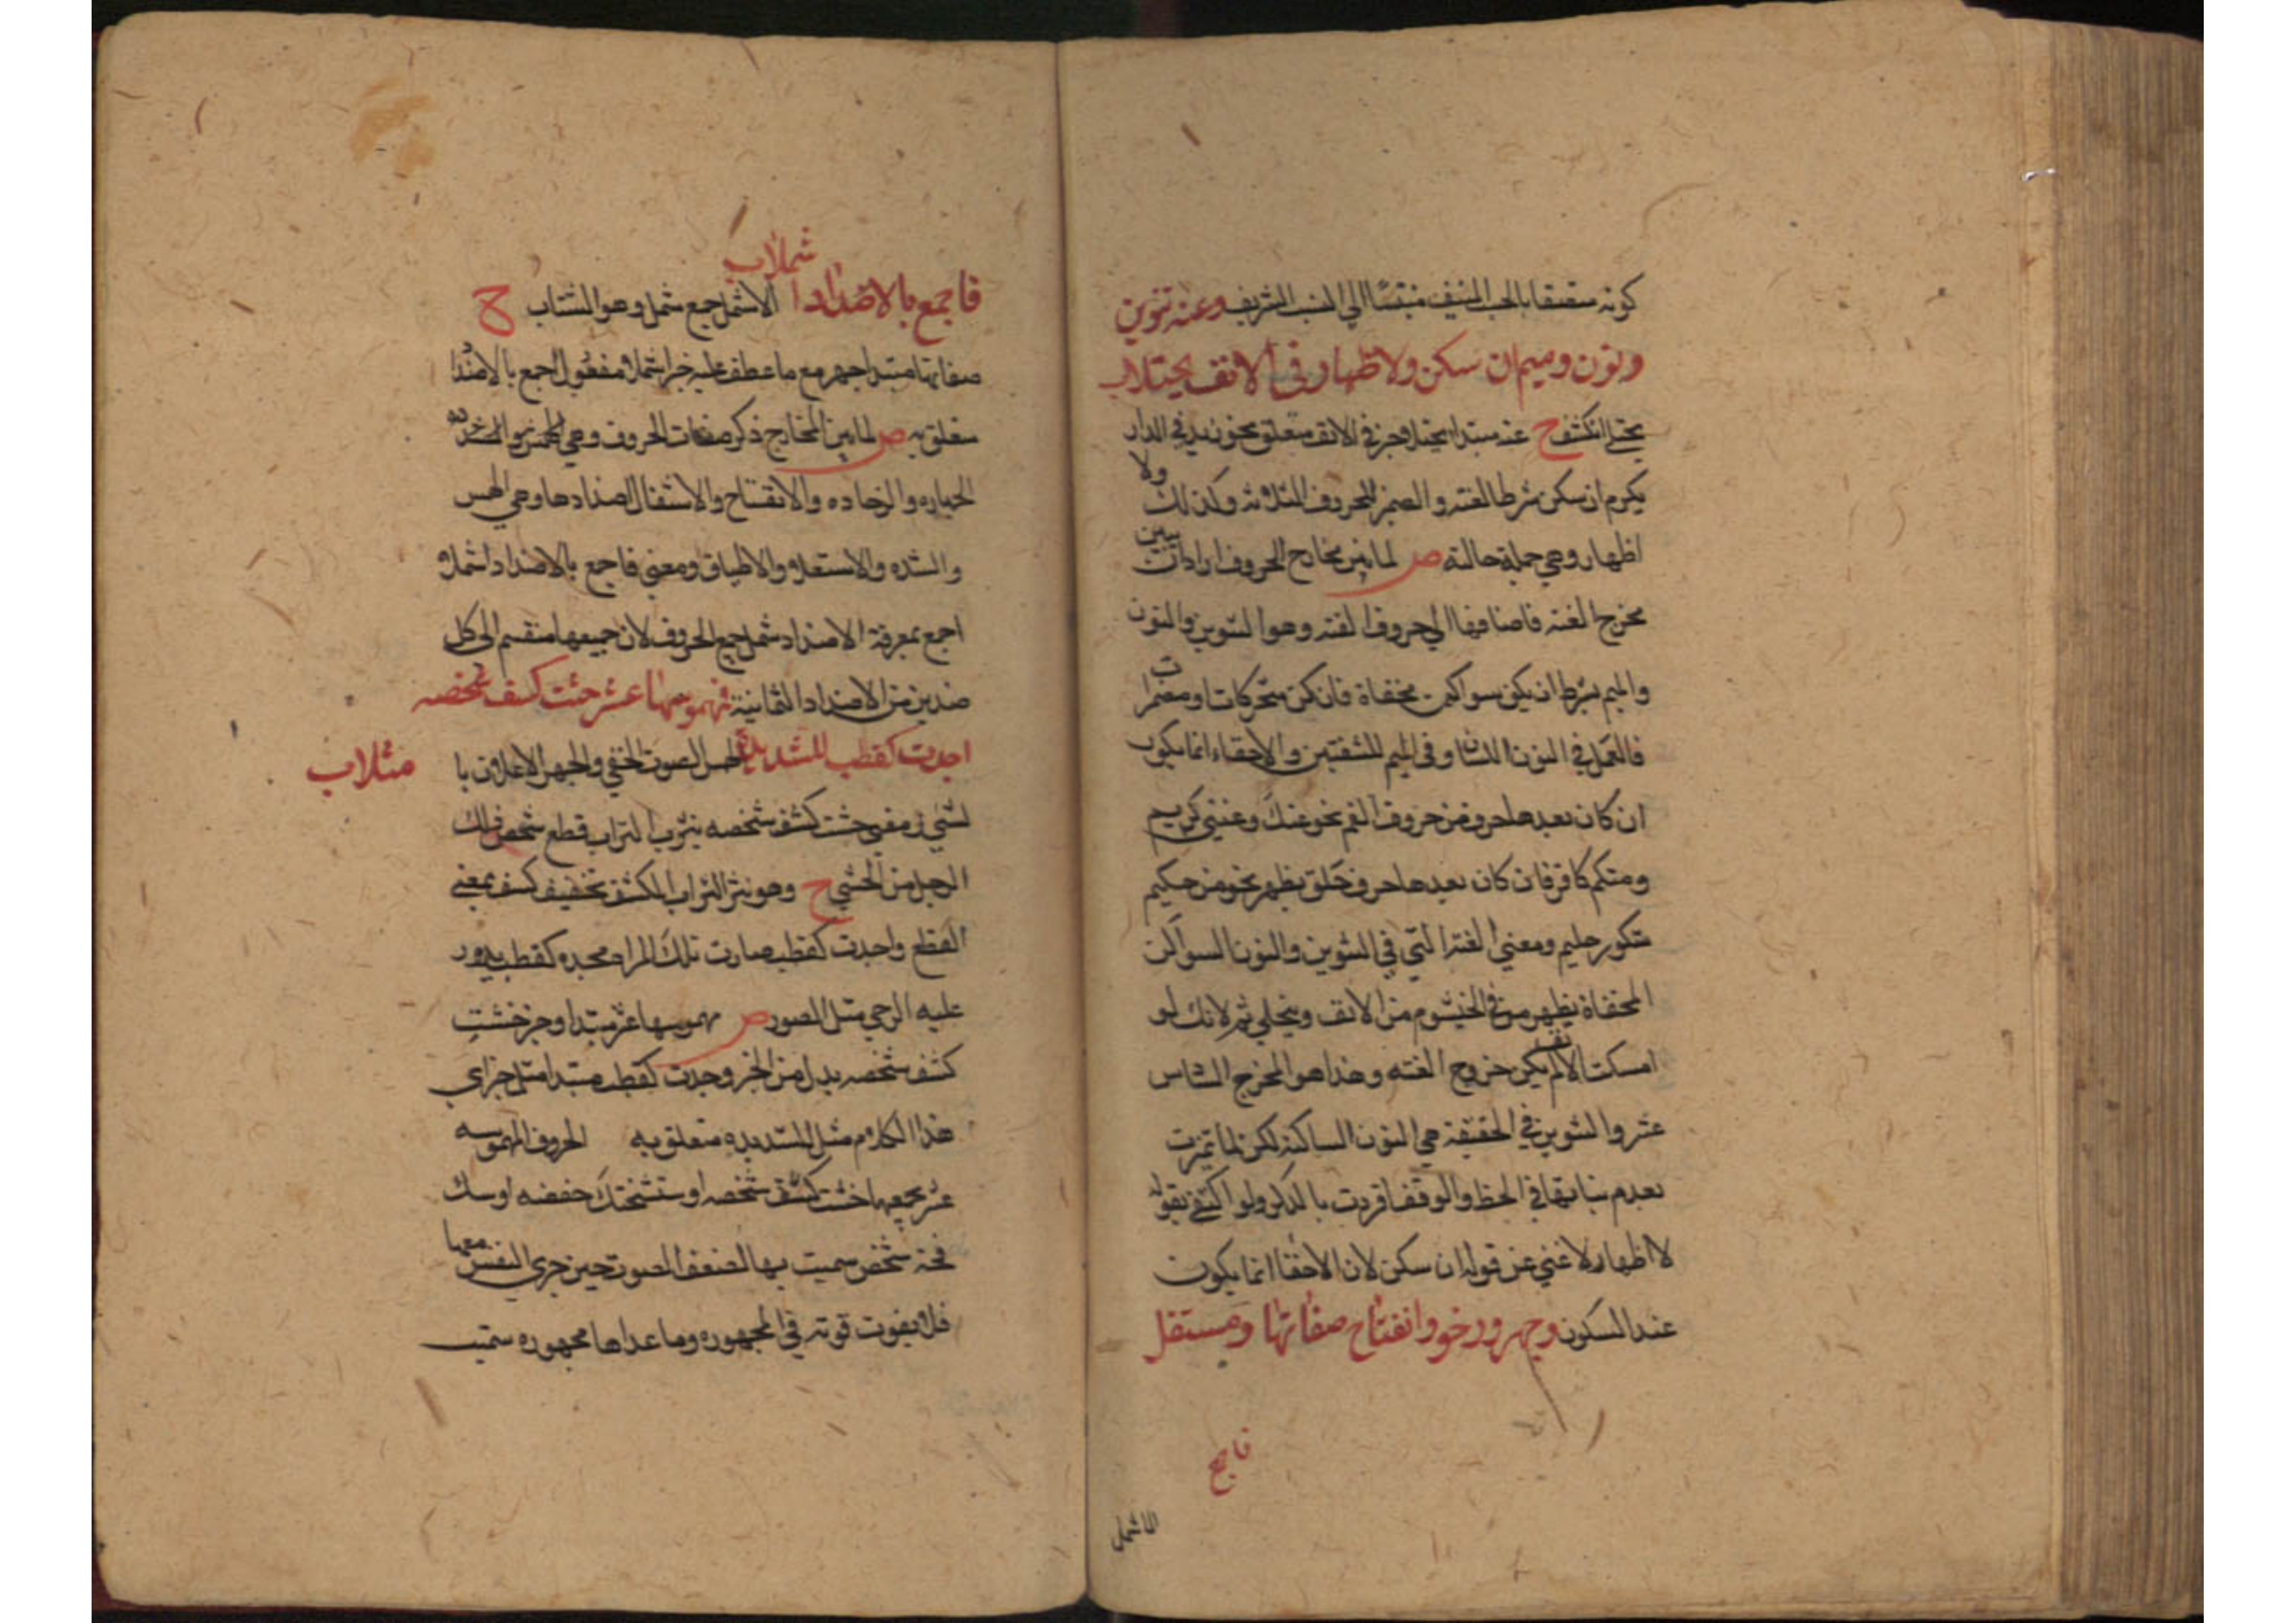 كونه متصفا بالحب المنيف منتسبًا الي النسب الشريف وغنه تنوين
ونون وميم ان سكن ولا اظهار في الانف يجتلا
يجتلي انكشف ح غنه مبتدا يجتلا وخبر في الانف متعلق نحو زيد في الدار
يكرم ان سكن شرط الغنه والضمير للحروف الثلاثه وكذلك ولا
اظهار وهي جملة حالية ص لما بين مخارج الحروف اراد ان يبين
مخرج الغنه فاضافها الي حروف الغنه وهو التنوين والنون
والميم بشرط ان يكن سواكن مخفاة فان كن متحركات او مضمرات
فالعمل في النون اللسان وفي الميم للشفتين والاخفاء انما يكون
ان كان بعدها حرف من حروف الفم نحو عنك وغني كريم
ومنكم كافر فان كان بعدها حرف حلق يظهر نحو من حكيم
شكور حليم ومعني الغنه التي في التنوين والنون السواكن
المخفاة يظهر من في الخيشوم من الانف وينجلي ثم لانك لو
امسكت الانف لم يكن خروج الغنه وهذا هو المخرج السادس
عشر والتنوين في الحقيقة هي النون الساكنه لكن لما تميزت
بعدم ثباتها في الخط والوقف افردت بالذكر ولو اكتفي بقوله
لا اظهار لاغني عن قوله ان سكن لان الاخفا انما يكون
عند السكون وجهر ورخو وانفتاح صفاتها ومستفل
فاجمع
الاشمل
شملا
فاجمع بالاضدادا الاشمل جمع شمل وهو الشتات ح
صفاتها مبتدا جهر مع ما عطف عليه خبر اشملا مفعول اجمع بالاضدا
متعلق به ص لما بين المخارج ذكر صفات الحروف وهي الهمز والشده
الجهاره والرخاده والانفتاح والاستفال اضدادها وهي الهمس
والشده والاستعلاء والاطباق ومعني فاجمع بالاضداد اشملا
اجمع بمعرفة الاضداد شمل جميع الحروف لان جميعها منقسم الي كل
ضدين من الاضداد الثمانية فمهموسها عشر حثت كسف شخصه
اجدت كقطب للشديدة الهمس الصوت الخفي والجهر الاعلان با
مثلا
لشي حثت كشف شخصه بترب التراب قطع شخص ذلك
الرجل من الحثي ح وهو نثر التراب الكشف تخفيف كسف بمعني
القطع واجدت كقطب صارت تلك المراه مجده كقطب يدور
عليه الرحي مثل المصور ص مهموسها عشر مبتدا وخبر خشت
كشف شخصه بدل من الخبر وجدت كقطب مبتدا مثل خبر اي
هذا الكلام مثل للشديده متعلق به الحروف المهموسه
عشر يجمعها خشت كشف شخصه او ستشحثك خصفه او سكت
فحثه شخص سميت بها لضعف الصوت حين جري النفس معها
فلا يفوت قوته في المجهوره وما عداها مجهوره سميت